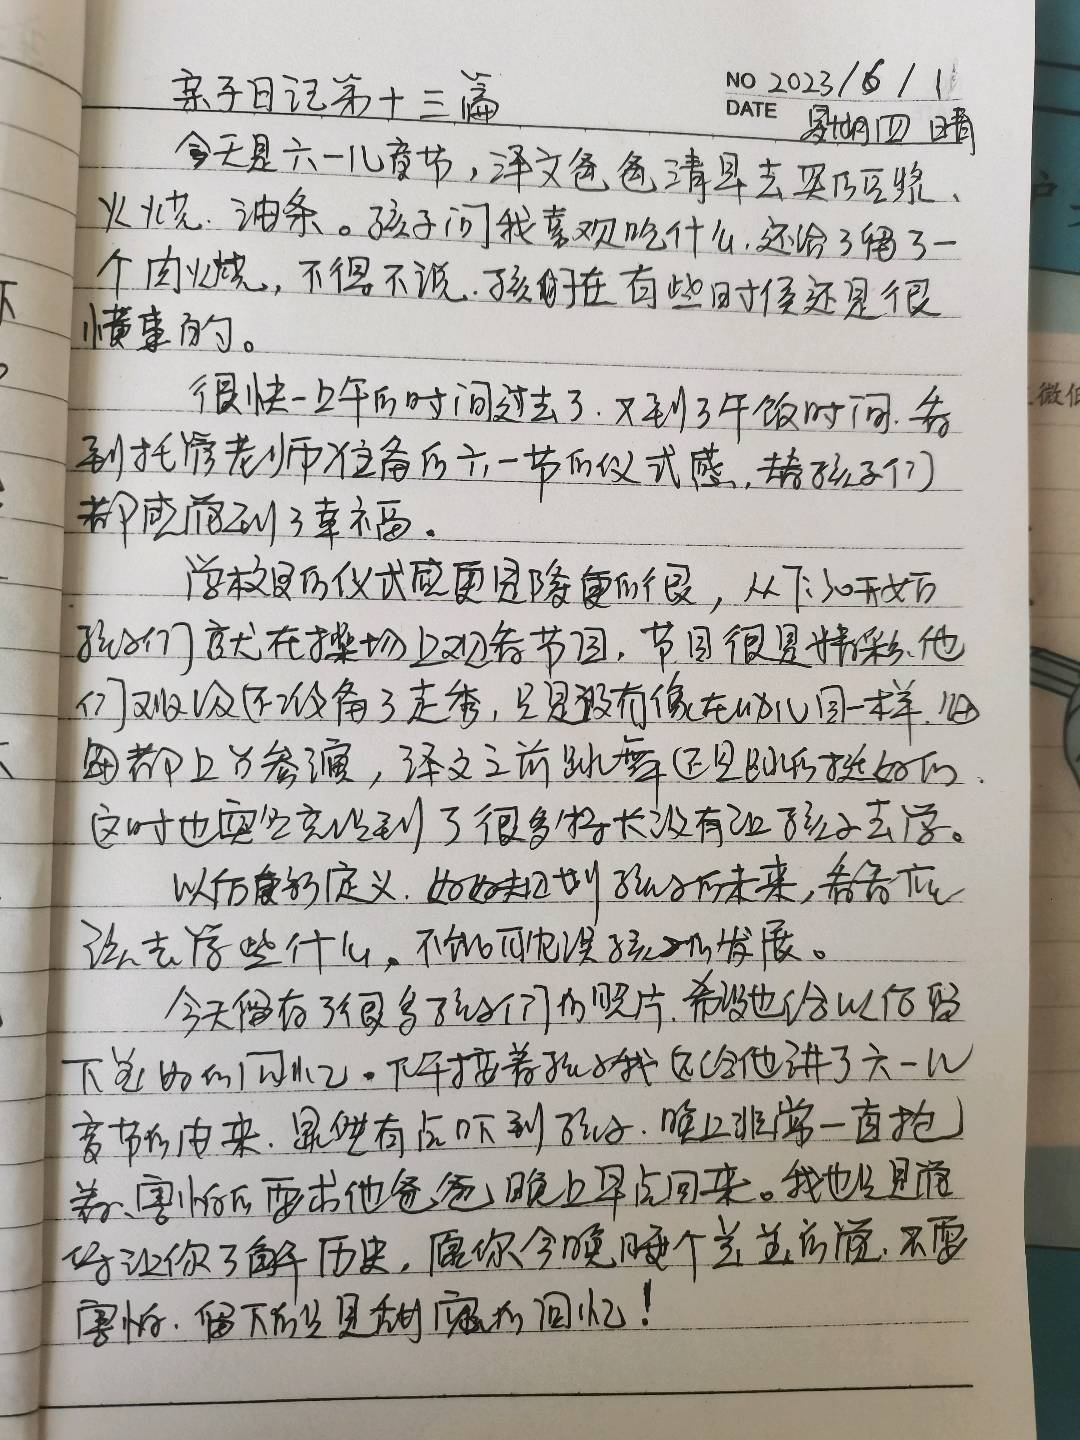 亲子日记第十三篇
NO 2023/6/1
DATE 星期四 晴
今天是六一儿童节,泽文爸爸清早去买的豆浆、
火烧、油条。孩子问我喜欢吃什么,还给了留了一
个肉火烧,不得不说,孩子在有些时候还是很
懂事的。
很快一上午的时间过去了,又到了午饭时间,看
到托管老师准备的六一节的仪式感,孩子们
都感觉到了幸福。
学校里的仪式感更是隆重的很,从下午开始
孩子们就在操场上观看节目,节目很是精彩,他
们还设备了走秀,只是没有像在幼儿园一样,
都上台参演,泽文之前跳舞还是跳的挺好的,
这时也意识到了很多特长没有让孩子去学。
以后重新定义,好好规划孩子的未来,看看应
该去学些什么,不能耽误孩子的发展。
今天留存了很多孩子们的照片,希望也给以后留
下美好的回忆。下午接着孩子我还给他讲了六一儿
童节的由来,显然有点吓到孩子,晚上非常一直抱
着、害怕的要求他爸爸晚上早点回来。我也只是觉
好让你了解历史,愿你今晚睡个美美的觉,不要
害怕,留下的只是甜蜜的回忆!
微信